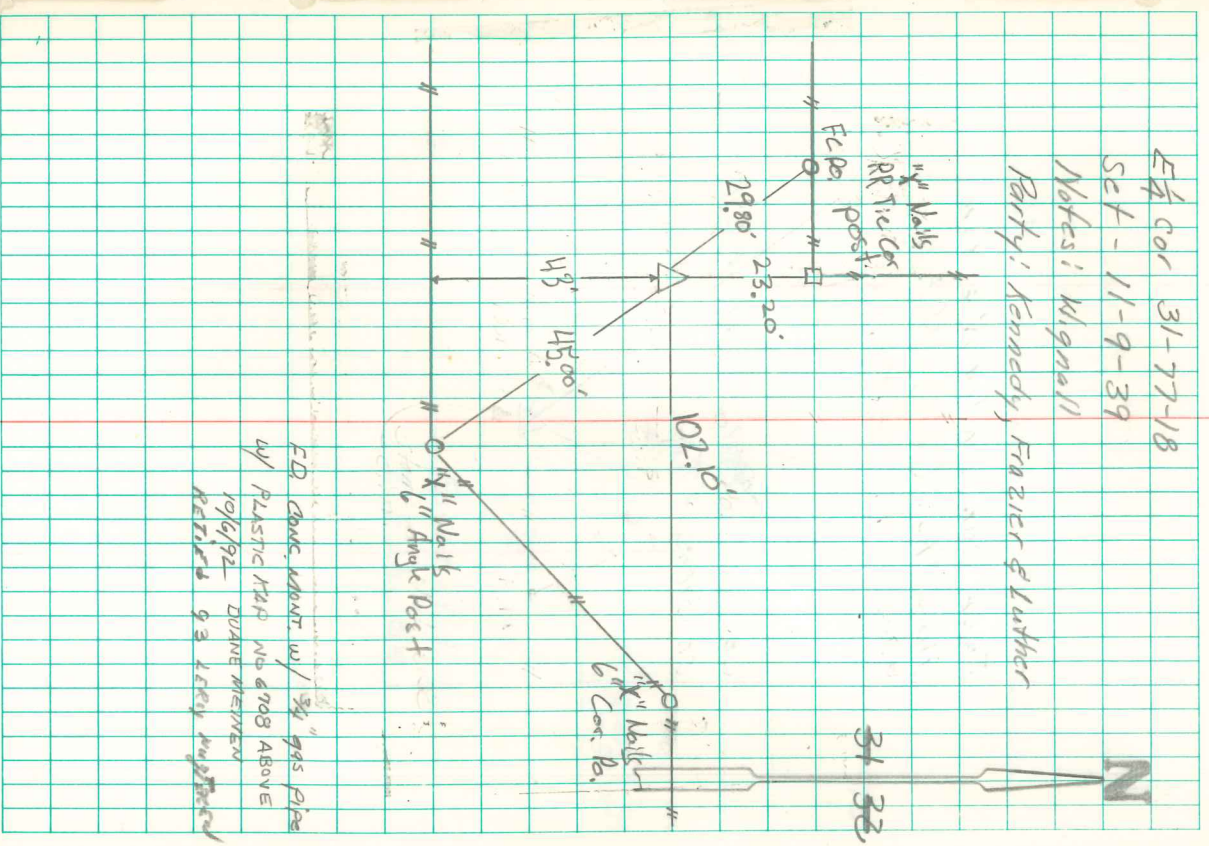 E¼ Cor 31-77-18
Set - 11-9-39
Notes: Wignall
Party: Kennedy, Frazier & Luther
N
31 32
"X" Nails
RR Tie Cor
post
FC Po.
29.80'
23.20'
43'
45.00'
102.10'
"X" Nails
6" Cor. Po.
"X" Nails
6" Angle Post
FD. CONC. MONT. W/ 3/4" gas PIPE
W/ PLASTIC KAP NO 6708 ABOVE
10/6/92 DUANE MEINEN
RETIED 93 LEROY